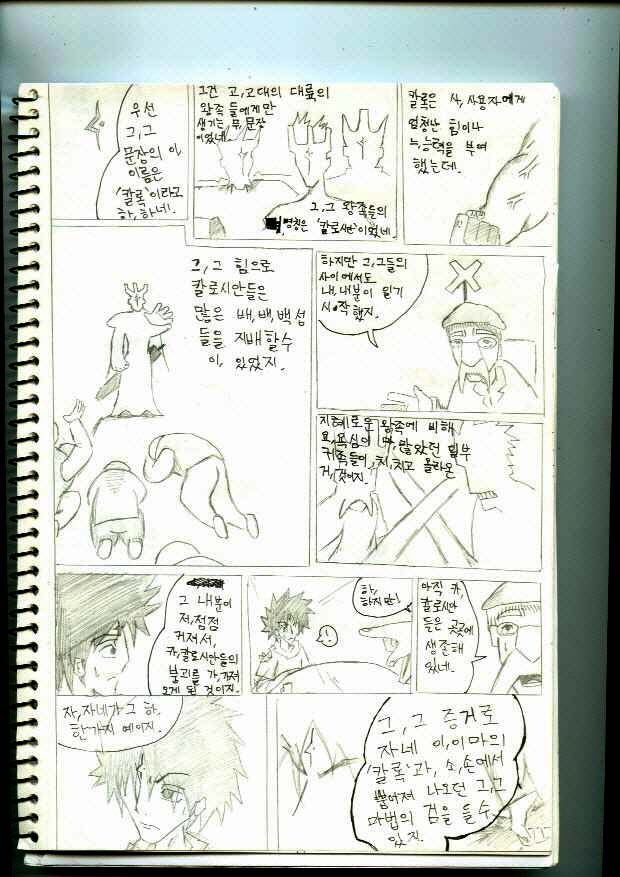 우선
그,그
문장의 이
이름은
'칼록'이라고
하,하네.
그건 고,고대의 대륙의
왕족 들에게만
생기는 무,문장
이었네.
그,그 왕족들의
명칭은 '칼로시안'이었네.
칼록은 사,사용자에게
엄청난 힘이나
느,능력을 부여
했는데.
그,그 힘으로
칼로시안들은
많은 배,백,백성
들을 지배할수
이,있었지.
하지만 그,그들의
사이에서도
내,내분이 일기
시,작했지.
지혜로운 왕족에 비해
요,욕심이 마,많았던 일부
귀족들이 치,치고 올라온
거,것이지.
그 내분이
저,점점
커져서,
카,칼로시안들의
붕괴를 가,가져
오게 된 것이지.
하,
하지만!
아직 카,
칼로시안
들은 곳곳에
생존해
있네.
자,자네가 그 하,
한가지 예이지.
그,그 증거로
자네 이,이마의
'칼록'과, 소,손에서
뿜어져 나오던 그,그
마법의 검을 들수
있지.